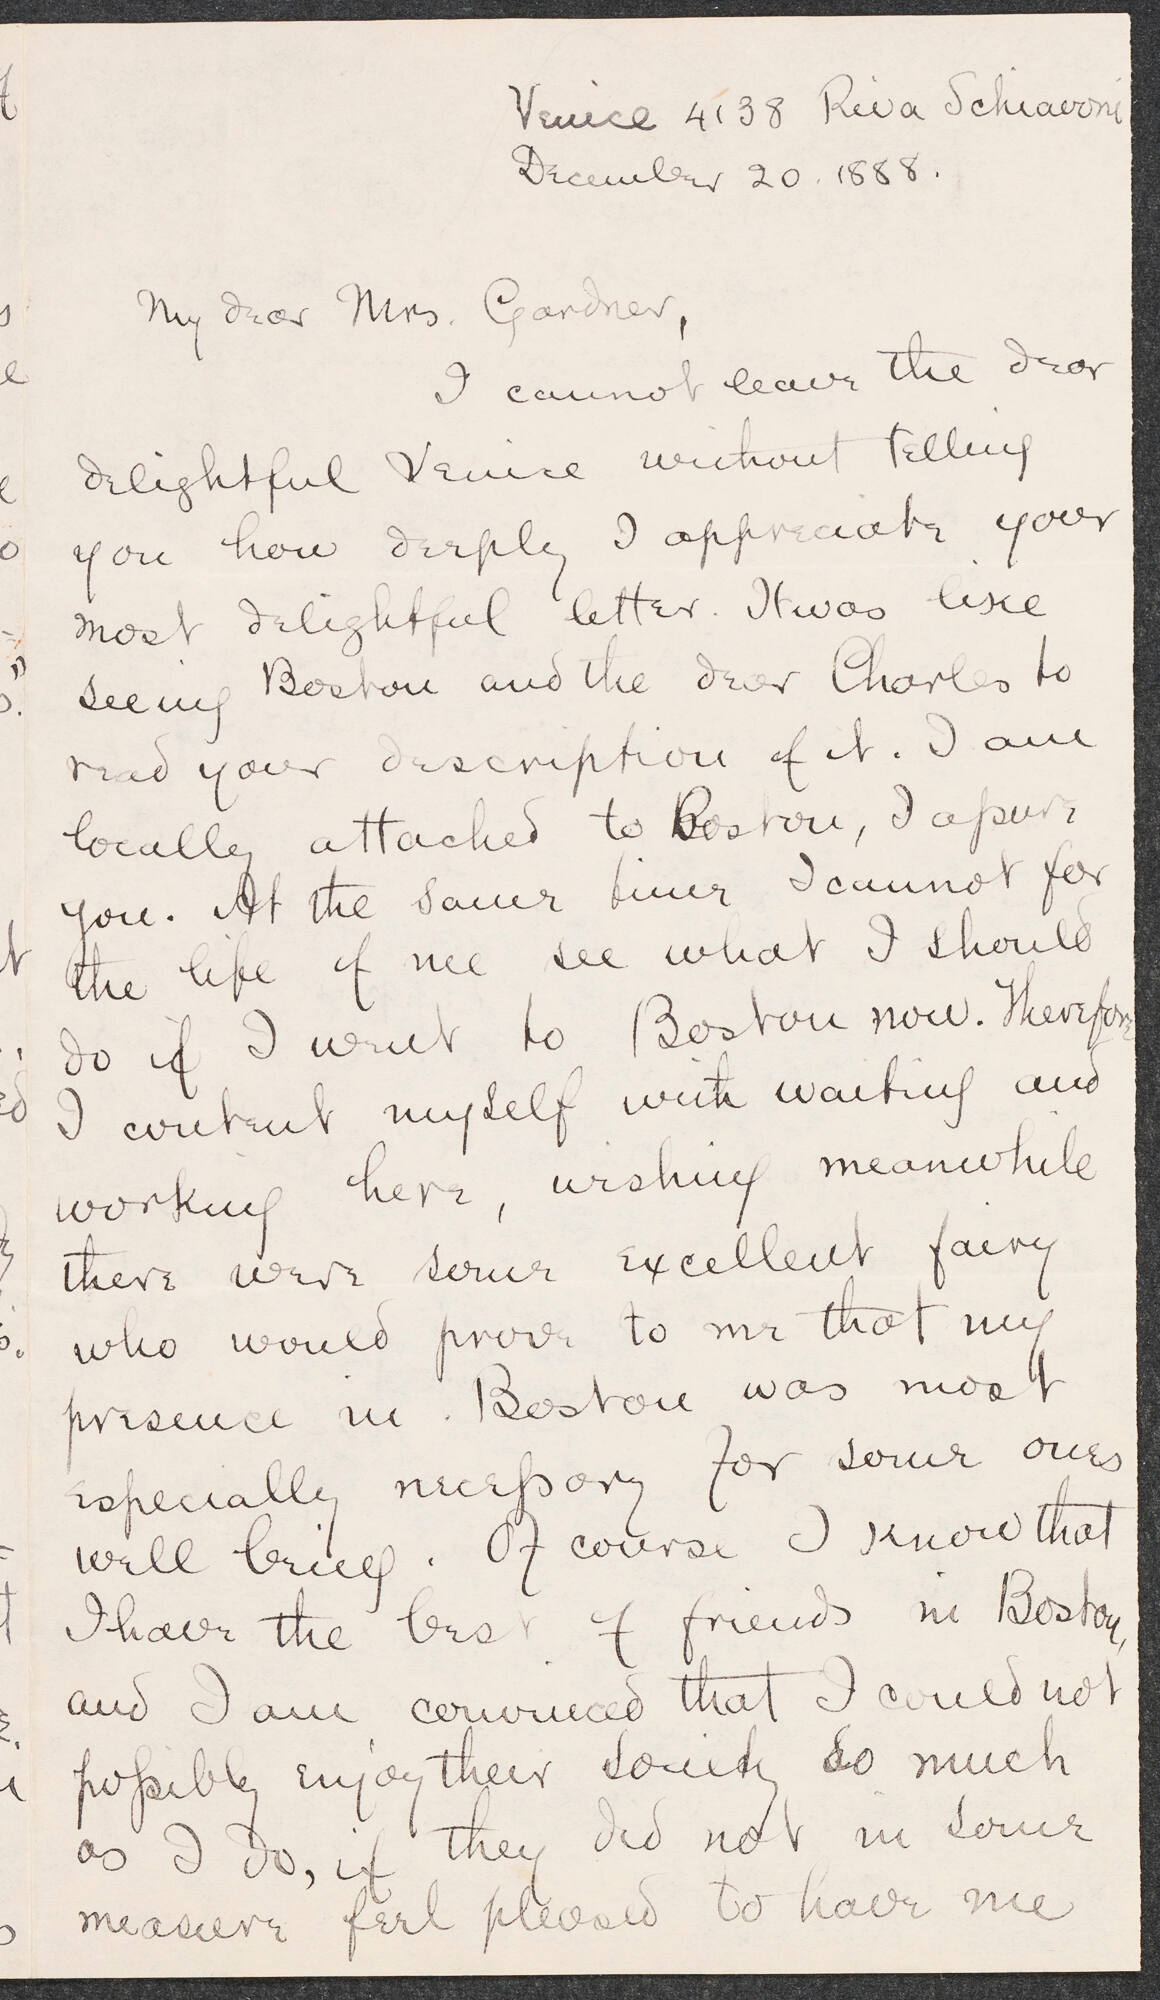 Venice 4138 Riva Schiavoni
December 20. 1888.
My dear Mrs. Gardner,
I cannot leave the dear
delightful Venice without telling
you how deeply I appreciate your
most delightful letter. It was like
seeing Boston and the dear Charles to
read your description of it. I am
locally attached to Boston, I assure
you. At the same time I cannot for
the life of me see what I should
do if I went to Boston now. Therefore
I content myself with waiting and
working here, wishing meanwhile
there were some excellent fairy
who would prove to me that my
presence in Boston was most
especially necessary for some ones
well being. Of course I know that
I have the best of friends in Boston,
and I am convinced that I could not
possibly enjoy their society so much
as I do, if they did not in some
measure feel pleased to have me